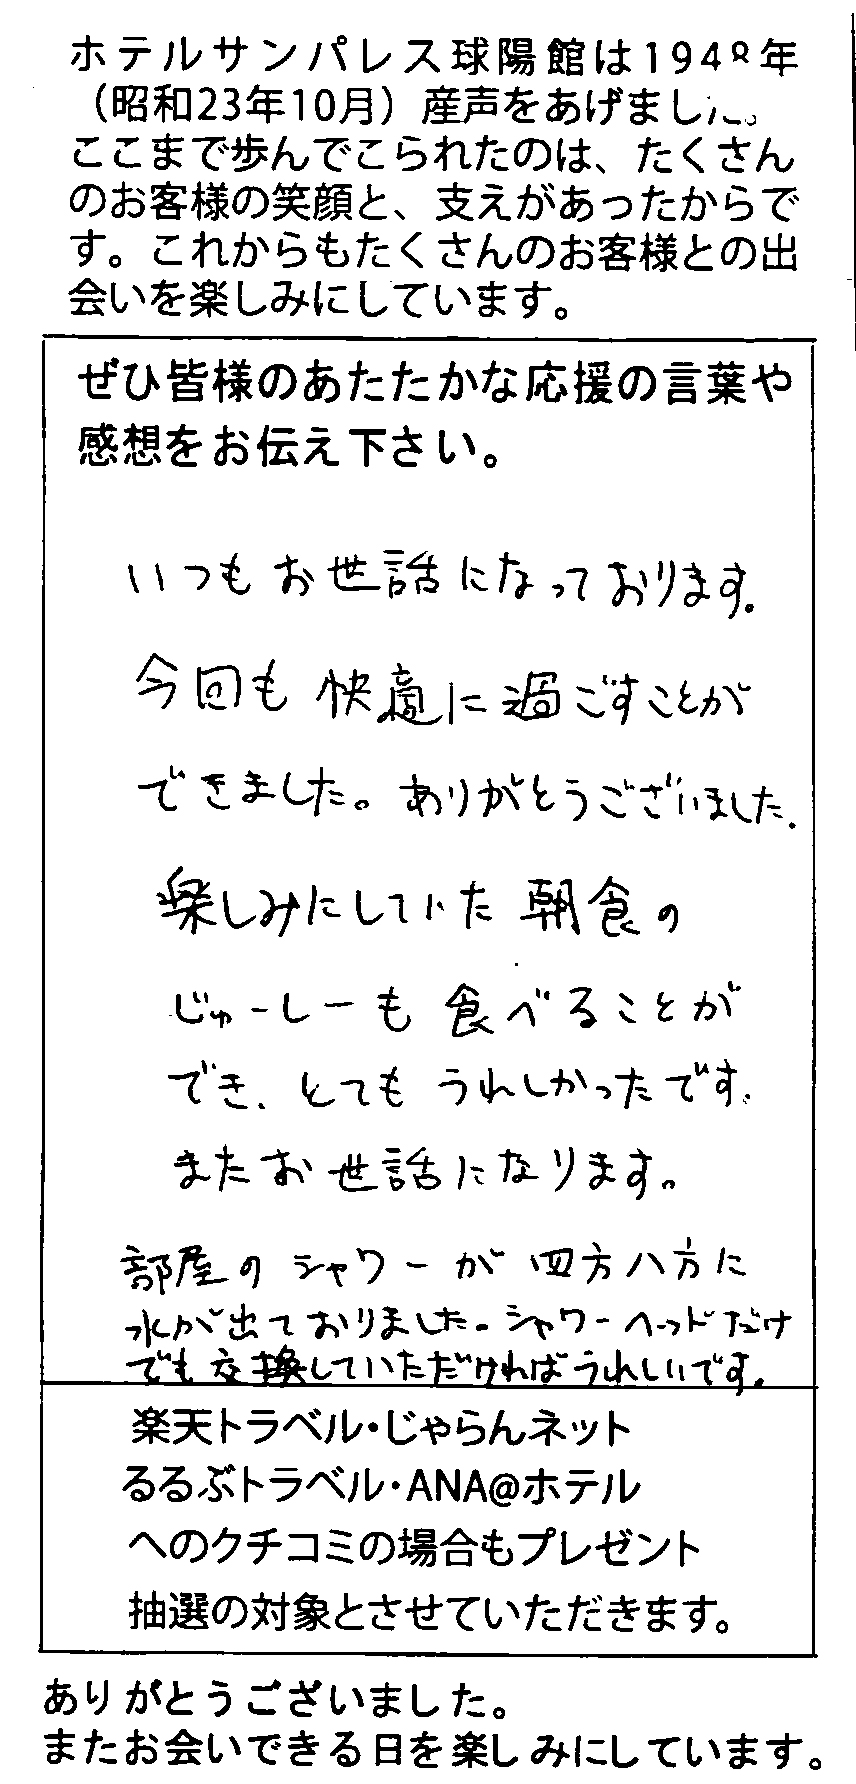 ホテルサンパレス球陽館は1948年
（昭和23年10月）産声をあげました。
ここまで歩んでこられたのは、たくさん
のお客様の笑顔と、支えがあったからで
す。これからもたくさんのお客様との出
会いを楽しみにしています。
ぜひ皆様のあたたかな応援の言葉や
感想をお伝え下さい。
いつもお世話になっております。
今回も快適に過ごすことが
できました。ありがとうございました.
楽しみにしていた朝食の
じゅーしーも食べることが
でき、とてもうれしかったです.
またお世話になります。
部屋のシャワーが四方八方に
水が出ておりました。シャワーヘッドだけ
でも交換していただければうれしいです。
楽天トラベル・じゃらんネット
るるぶトラベル・ANA@ホテル
へのクチコミの場合もプレゼント
抽選の対象とさせていただきます。
ありがとうございました。
またお会いできる日を楽しみにしています。